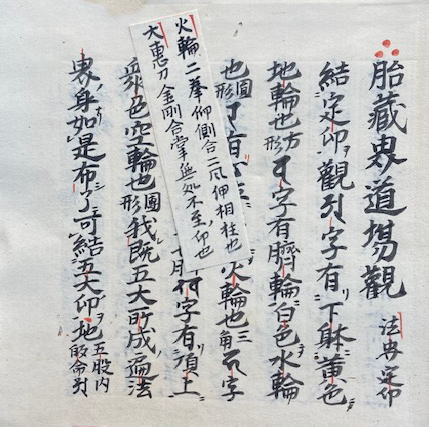 胎藏界道場觀 法界定印
結定印ヲ觀 字有リ下躰黄色
地輪也方形 字有臍輪白色水輪
也圓形 字有 火輪也三角 字
字有頂上
色空輪也圓形我既五大所成遍法
界身如是布了可結五大印ヲ地五股内
火輪二拳仰側合二風伸相柱也
大惠刀金剛合掌無知不至印也